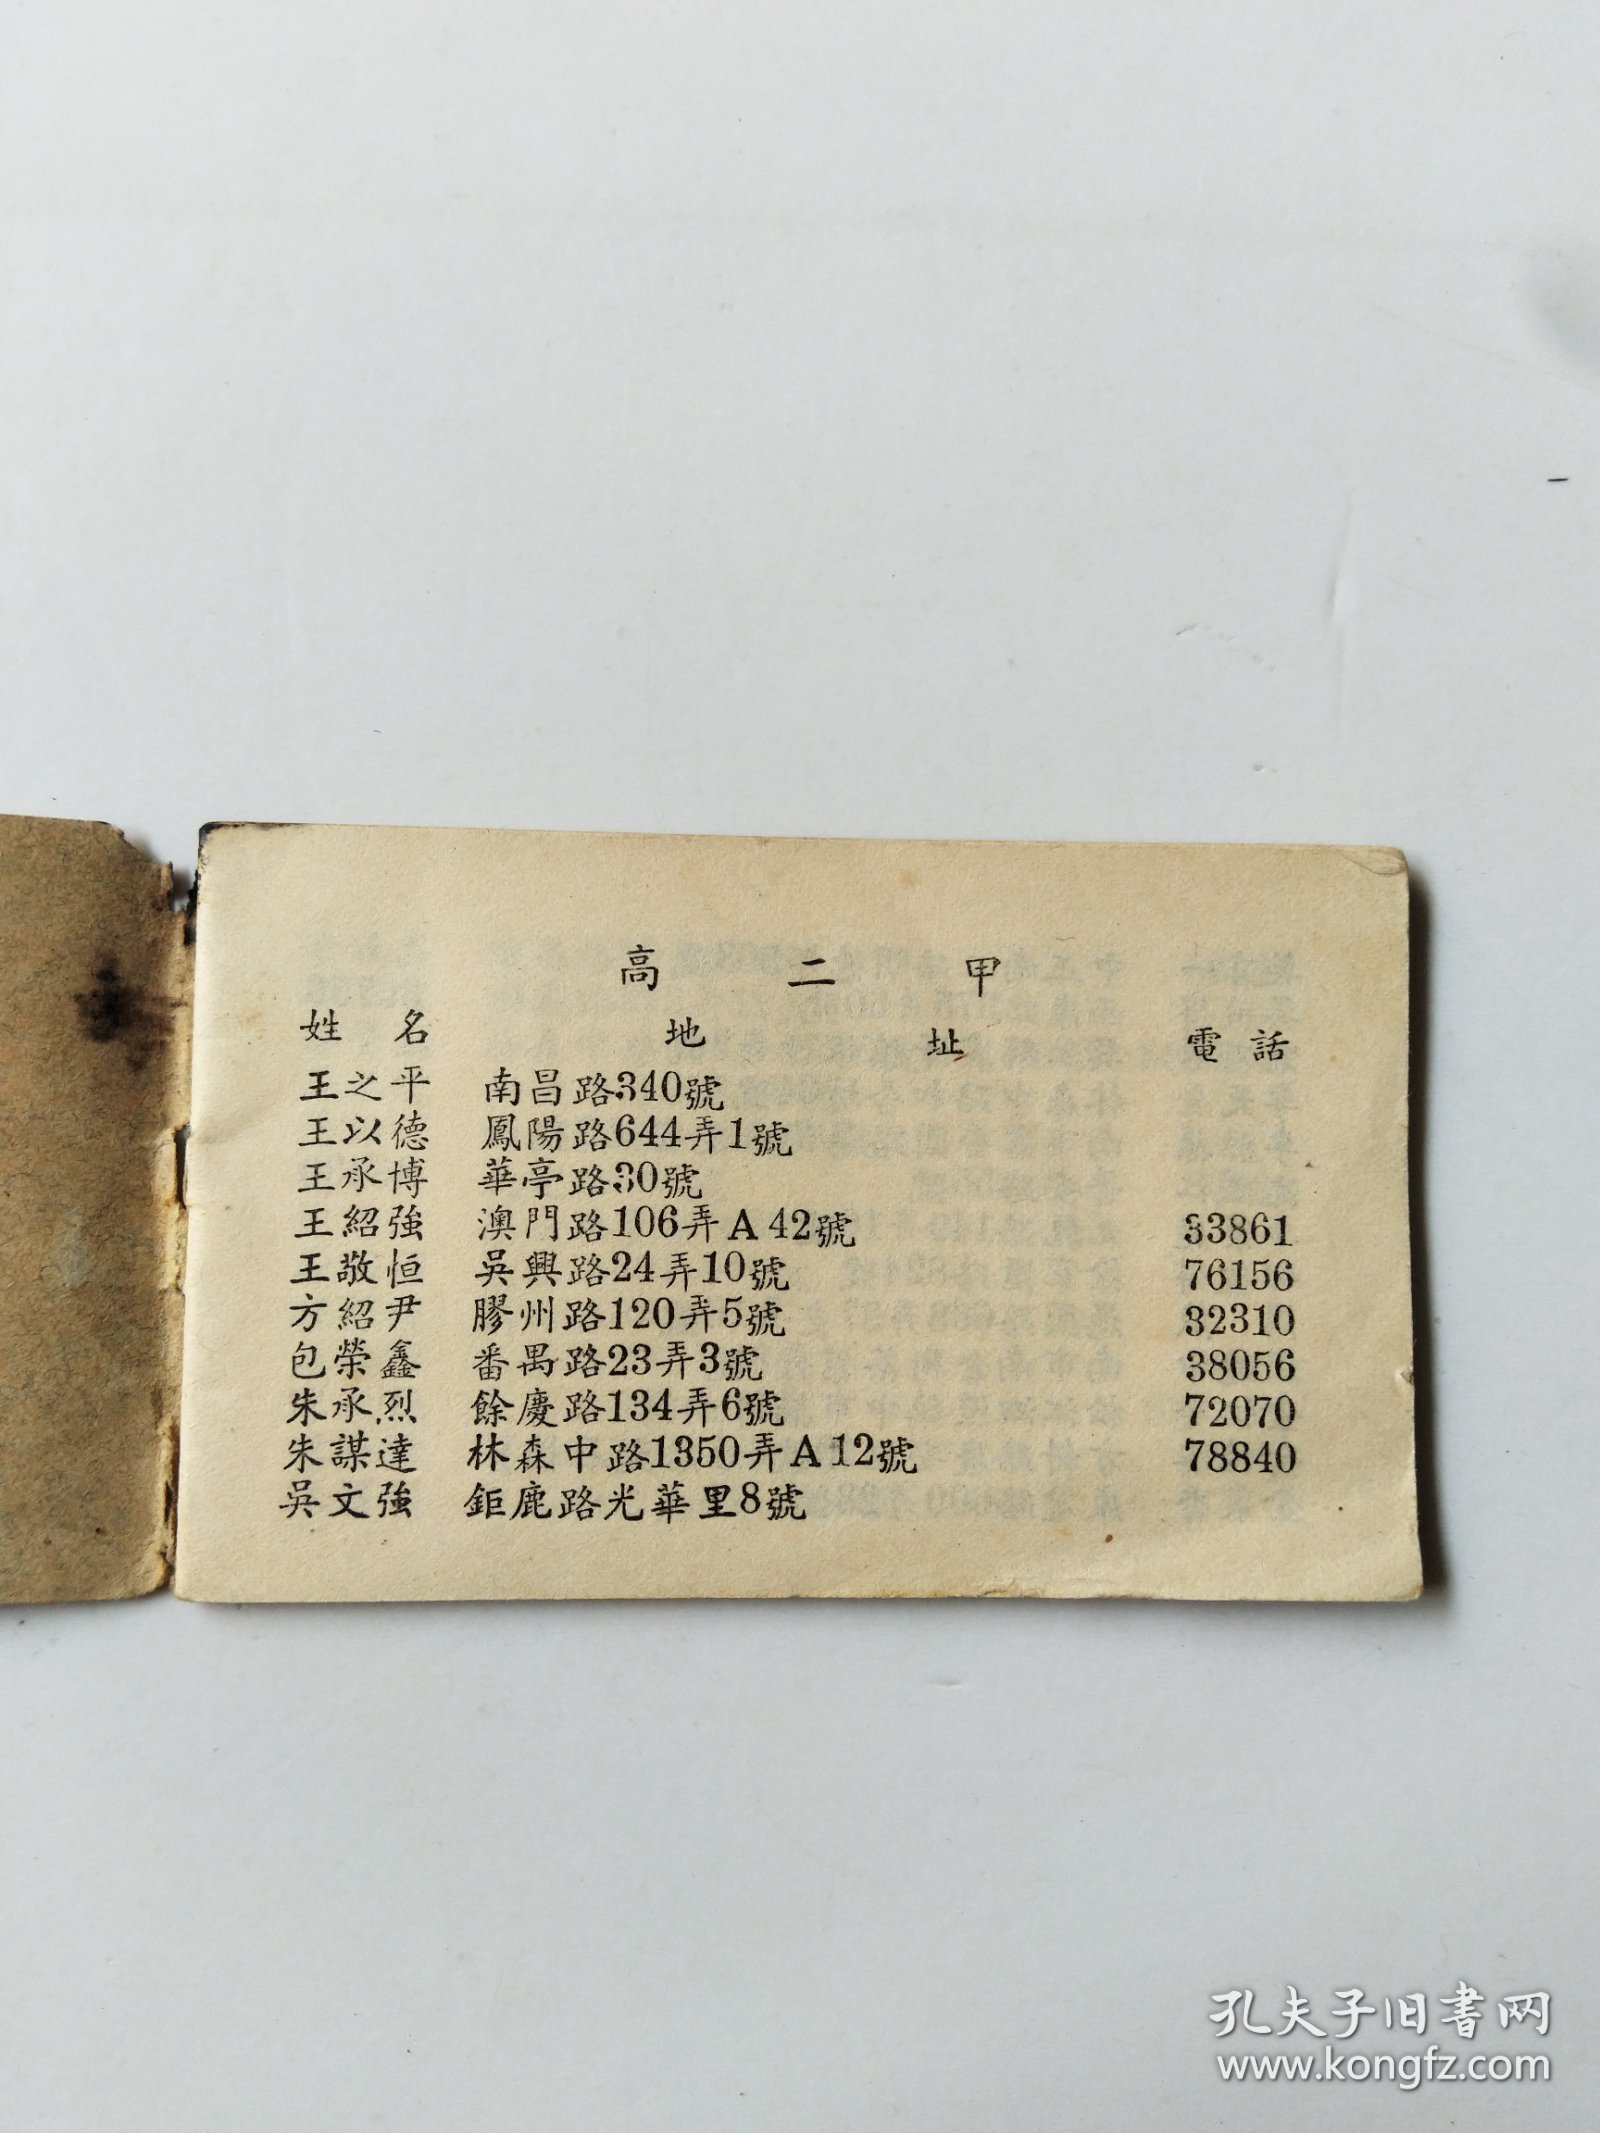 高二甲
姓名 地址 電話
王之平 南昌路340號
王以德 鳳陽路644弄1號
王承博 華亭路30號
王紹強 澳門路106弄A42號 33861
王敬恒 吳興路24弄10號 76156
方紹尹 膠州路120弄5號 32310
包榮鑫 番禺路23弄3號 38056
朱承烈 餘慶路134弄6號 72070
朱謀達 林森中路1350弄A12號 78840
吳文強 鉅鹿路光華里8號
孔夫子旧書网
www.kongfz.com